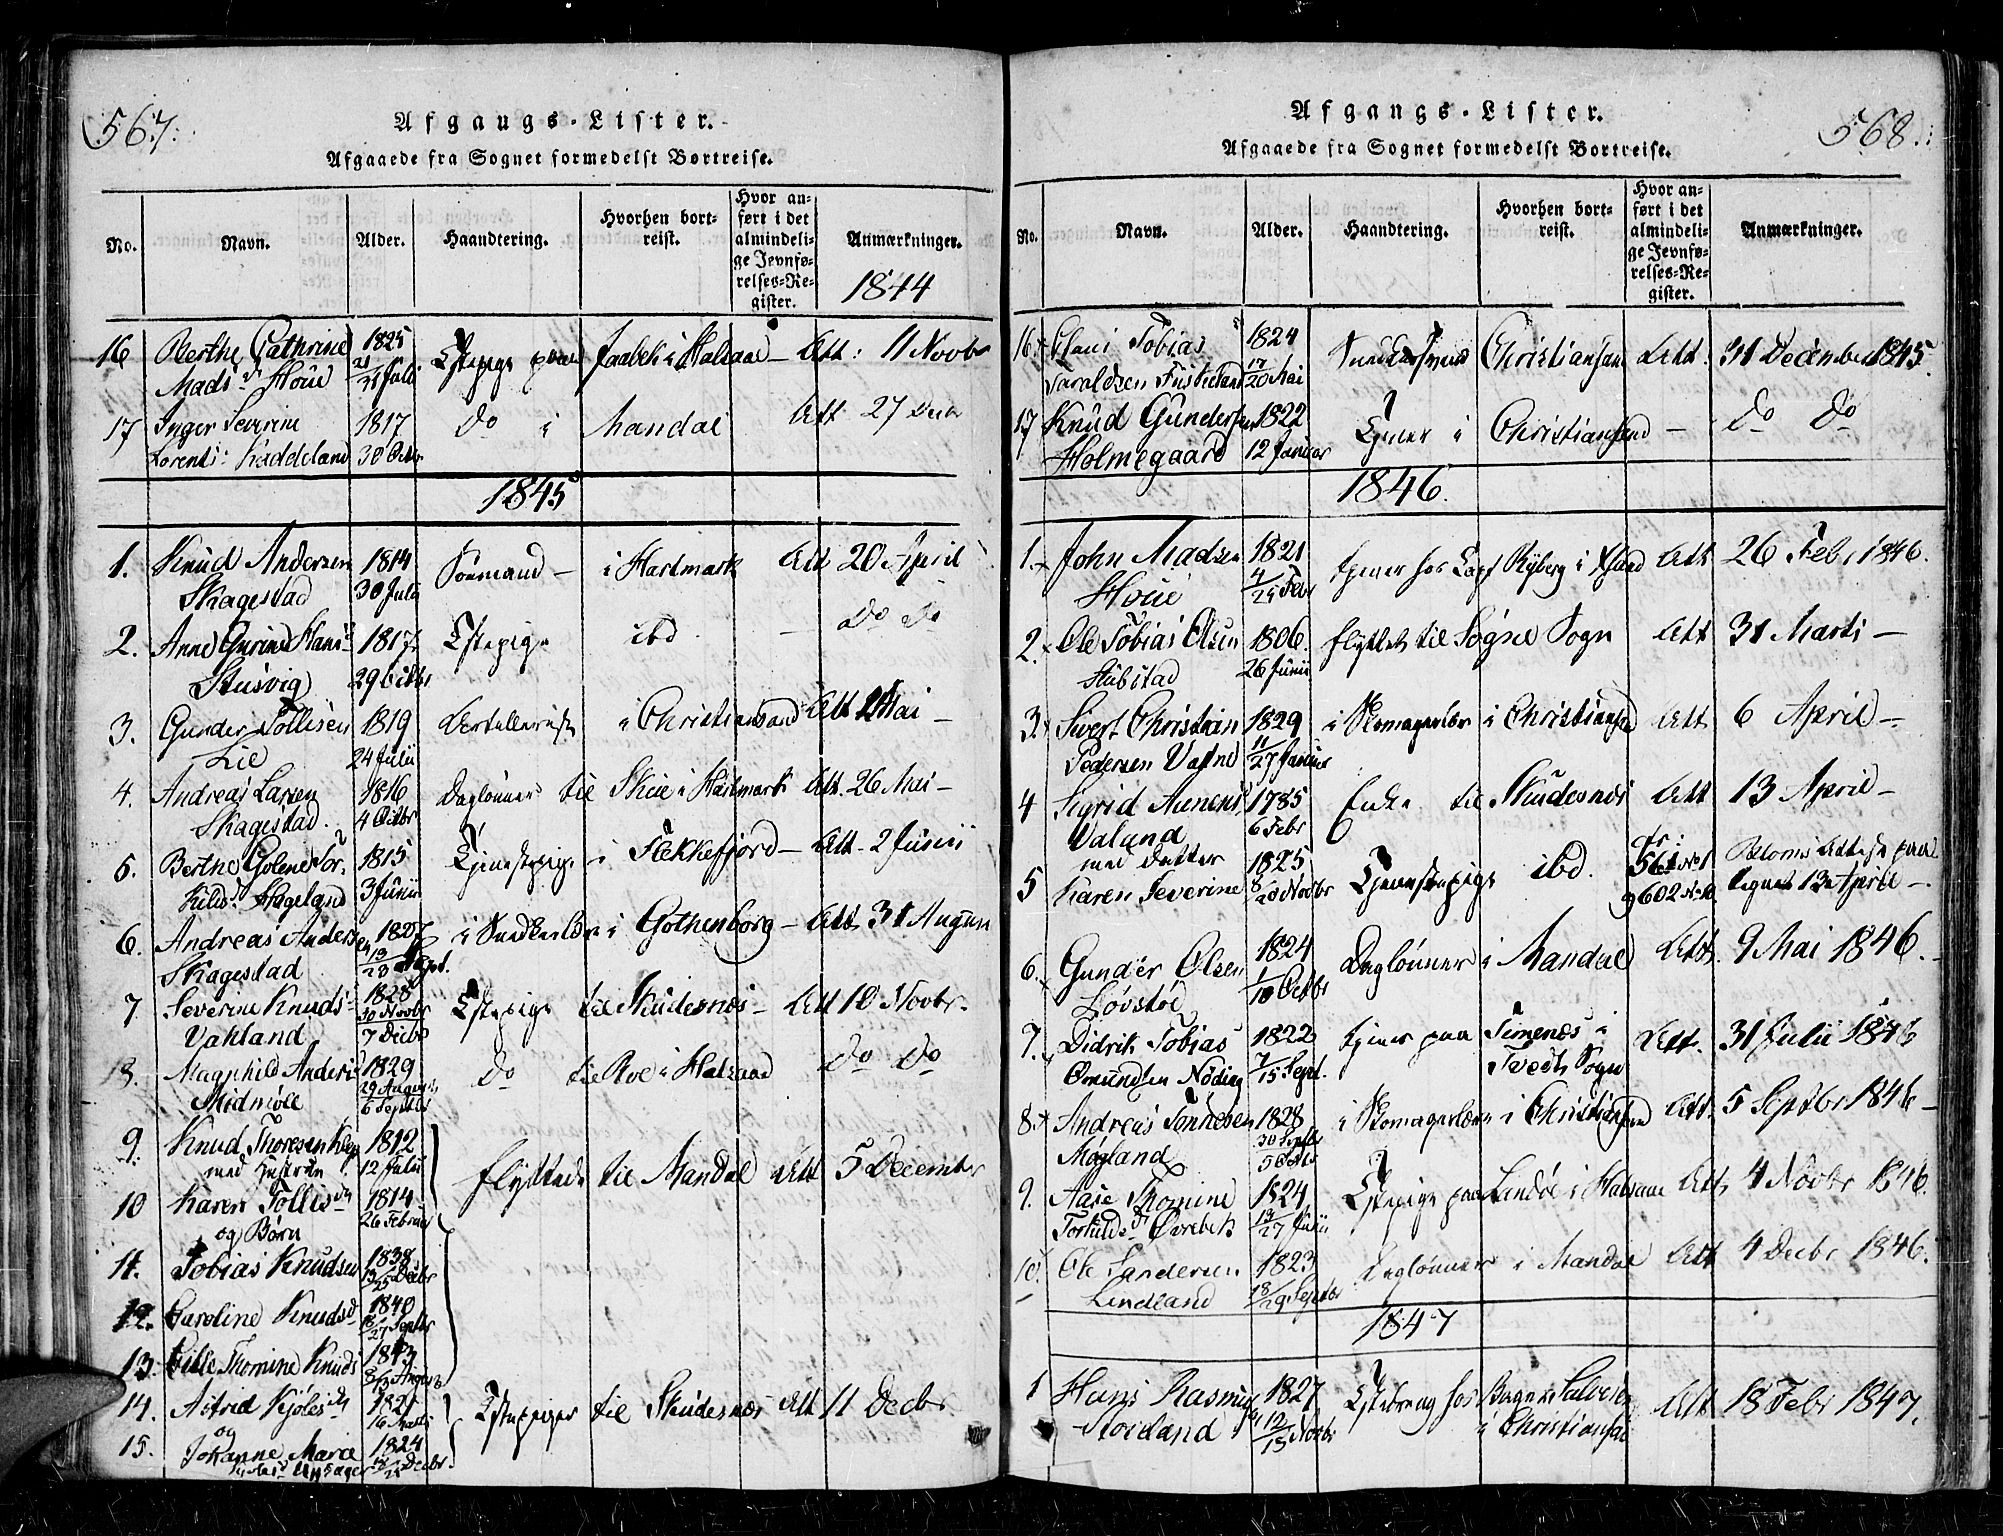 567.
Afgangs-Lister.
Afgaaede fra Sognet formedelst Bortreise.
No. Navn. Alder. Haandtering. Hvorhen bortreist. Hvor anført i det almindelige Jevnførelses-Register. Anmærkninger.
1844
16 Berthe Cathrine 1825 Tjstepige paa Jaabek i Halsaae Att: 11 Novbr
Mads: Houe 21/31 Juli
17 Inger Severine 1817 do i Mandal Att. 27 Decbr
Lorents: Raddeland 30 Octbr
1845
1. Knud Andersen 1814 i Hartmark Att 20 April
Skagestad 30 Juli
2. Anne Gurine Hans: 1817 Tjstepige ibd. — do do
Stusvig 29 Octbr
3. Gunder Tollisen 1819 Artillerist i Christiansand Att Mai —
Lie 24 Julii
4. Andreas Larsen 1816 Daglønner til Skue i Hartmark Att. 26 Mai —
Skagestad. 4 Octbr
5. Berthe Golene Tor- 1815 Tjenestepige i Flekkefjord — Att. 2 Junii
kilds: Hageland 3 Junii
6. Andreas Anders 1827 i Snedkerlære i Gothenborg — Att. 31 August
Skagestad 13/23 Sept.
7 Severine Knuds- 1828 Tjstepige til Skudesnes — Att 10 Novbr.
Vatland 30 Novbr/7 Decbr
8. Magnhild Anders 1829 do til Roe i Halsaae do do
Midmøll 29 August/6 Septbr
9. Knud Thoresen Klep 1812 flyttede til Mandal Att 5 December
med Hustrue 12 Julii
10 Karen Tollisdtr 1814
og Børn 26 Februar
11. Tobias Knudsen 1838
13/25 Decbr
12. Caroline Knudsd 1840
18/27 Septbr
13. Cille Thomine Knuds 1843
8/13 August
14. Astrid Kjølesdtr 1821 Tjstepiger til Skudesnes Att 11 Decbr
og 16 Marts
15. Johanne Marie 1824
Upsager Decbr
568.
Afgangs-Lister.
Afgaaede fra Sognet formedelst Bortreise.
No. Navn. Alder. Haandtering. Hvorhen bortreist. Hvor anført i det almindelige Jevnførelses-Register. Anmærkninger.
16. Clani Tobias 1824 Snedkersvend Christiansand Att. 31 December 1845.
Taraldsen 17/20 Mai
17 Knud Gundersen 1822 Tjener i Christiansand — do do
Holmegaard 12 Januar
1846.
1. John Madsen 1821 tjener hos Capt Ryberg i Xsand Att 26 Febr 1846.
Houe 4/25 Febr
2. Ole Tobias Olsen 1806. flyttet til Søgne Sogn Att 31 Marts —
Stubstad 26 Junii
3. Sivert Christian 1829 i Skomagerlære i Christiansand Att 6 April —
Pedersen Vatne 11/27 Januar
4 Sigrid Aunens 1785 Enke til Skudesnes Att 13 April —
Valand 6 Febr
med Datter
5 Karen Severine 1825 Tjenestepige ibd. Attest paa
8/20 Novbr 13 April —
6. Gunder Olsen 1824 Daglønner i Mandal Att. 9 Mai 1846.
Løvstøl 1/10 Octbr
7. Didrik Tobias 1822 tjener paa Timenæs i Att. 31 Julii 1846
Omundsen Nøding 7/15 Sept. Tvedt Sogn
8. Andreas Tønnesen 1828 i Skomagerlære i Christiansand Att. 5 Septbr 1846 —
Møgland 30 Septbr
9. Aase Thomine 1824 Tjstepige paa Landøe i Halsaae Att. 4 Novbr 1846.
Torkildsd Øvrebek 13/27 Junii
10. Ole Sandersen 1823 Daglønner i Mandal Att 4 Decbr 1846.
Lindland 18/29 Septbr
1847
1 Hans Rasmus 1827 Tjstedreng hos Bager Salvesen Att 18 Febr 1847.
Stordland 12/15 Novbr i Christiansand